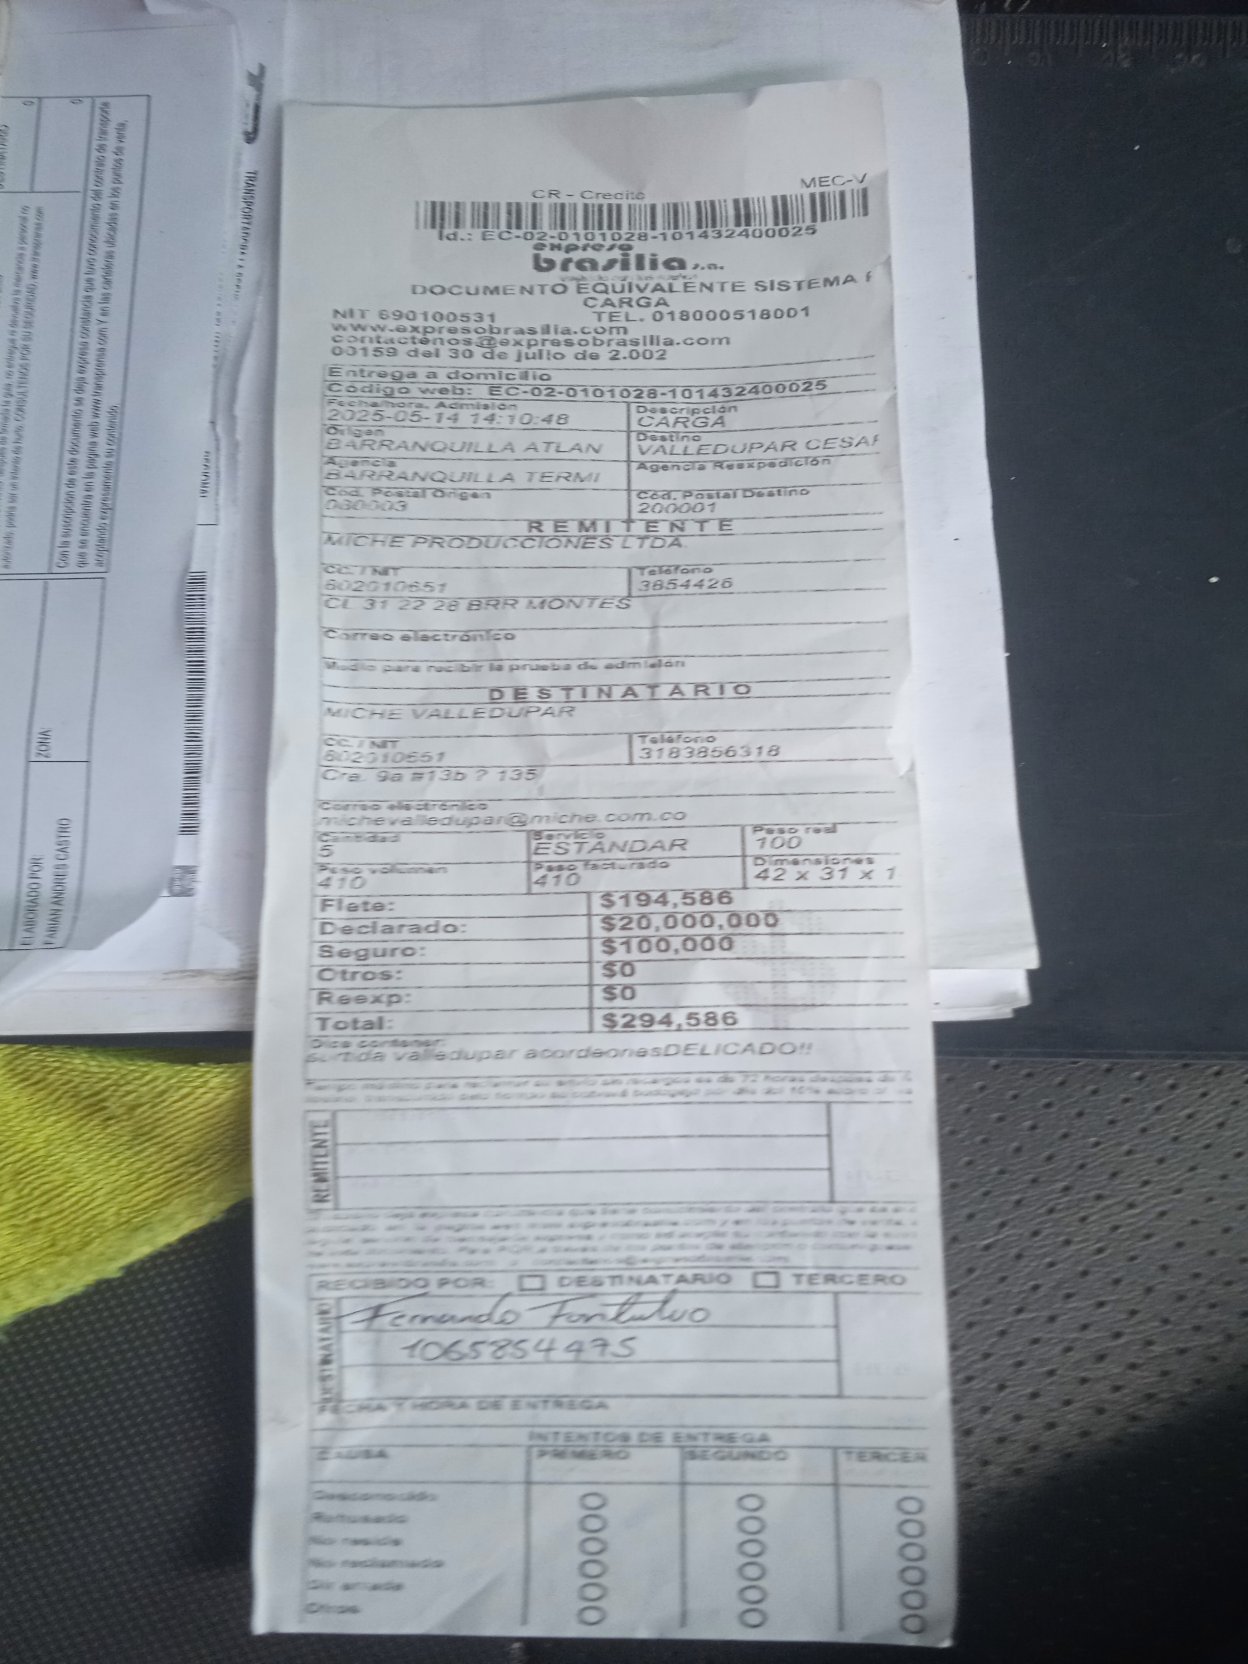 CR - Credito
MEC-V
Id.: EC-02-0101028-101432400025
expreso
brasilia s.a.
DOCUMENTO EQUIVALENTE SISTEMA
CARGA
NIT 890100531 TEL. 018000518001
www.expresobrasilia.com
contactenos@expresobrasilia.com
00159 del 30 de julio de 2.002
Entrega a domicilio
Código web: EC-02-0101028-101432400025
Fecha/hora. Admisión Descripción
2025-05-14 14:10:48 CARGA
Origen Destino
BARRANQUILLA ATLAN VALLEDUPAR CESAR
Agencia Agencia Reexpedición
BARRANQUILLA TERMI
Cod. Postal Origen Cod. Postal Destino
080003 200001
REMITENTE
MICHE PRODUCCIONES LTDA
CC. / NIT Teléfono
802010651 3854426
CL 31 22 28 BRR MONTES
Correo electrónico
Medio para recibir la prueba de admisión
DESTINATARIO
MICHE VALLEDUPAR
CC. / NIT Teléfono
802010651 3183856318
Cra. 9a #13b ? 135
Correo electrónico
michevalledupar@miche.com.co
Cantidad Servicio Peso real
5 ESTÁNDAR 100
Peso volumen Peso facturado Dimensiones
410 410 42 x 31 x 1
Flete: $194,586
Declarado: $20,000,000
Seguro: $100,000
Otros: $0
Reexp: $0
Total: $294,586
Dice contener:
surtida valledupar acordeonesDELICADO!!
REMITENTE
RECIBIDO POR: DESTINATARIO TERCERO
DESTINATARIO
Fernando Fontalvo
1065854975
FECHA Y HORA DE ENTREGA
INTENTOS DE ENTREGA
CAUSA PRIMERO SEGUNDO TERCER
Desconocido
Rehusado
No reside
No reclamado
Dir errada
Otros
ELABORADO POR:
FABIAN ANDRES CASTRO
ZONA:
Con la suscripción de este documento se deja expresa constancia que tuvo conocimiento del contrato de transporte
que se encuentra en la pagina web www.transprensa.com Y en las carteleras ubicadas en los puntos de venta,
aceptando expresamente su contenido.